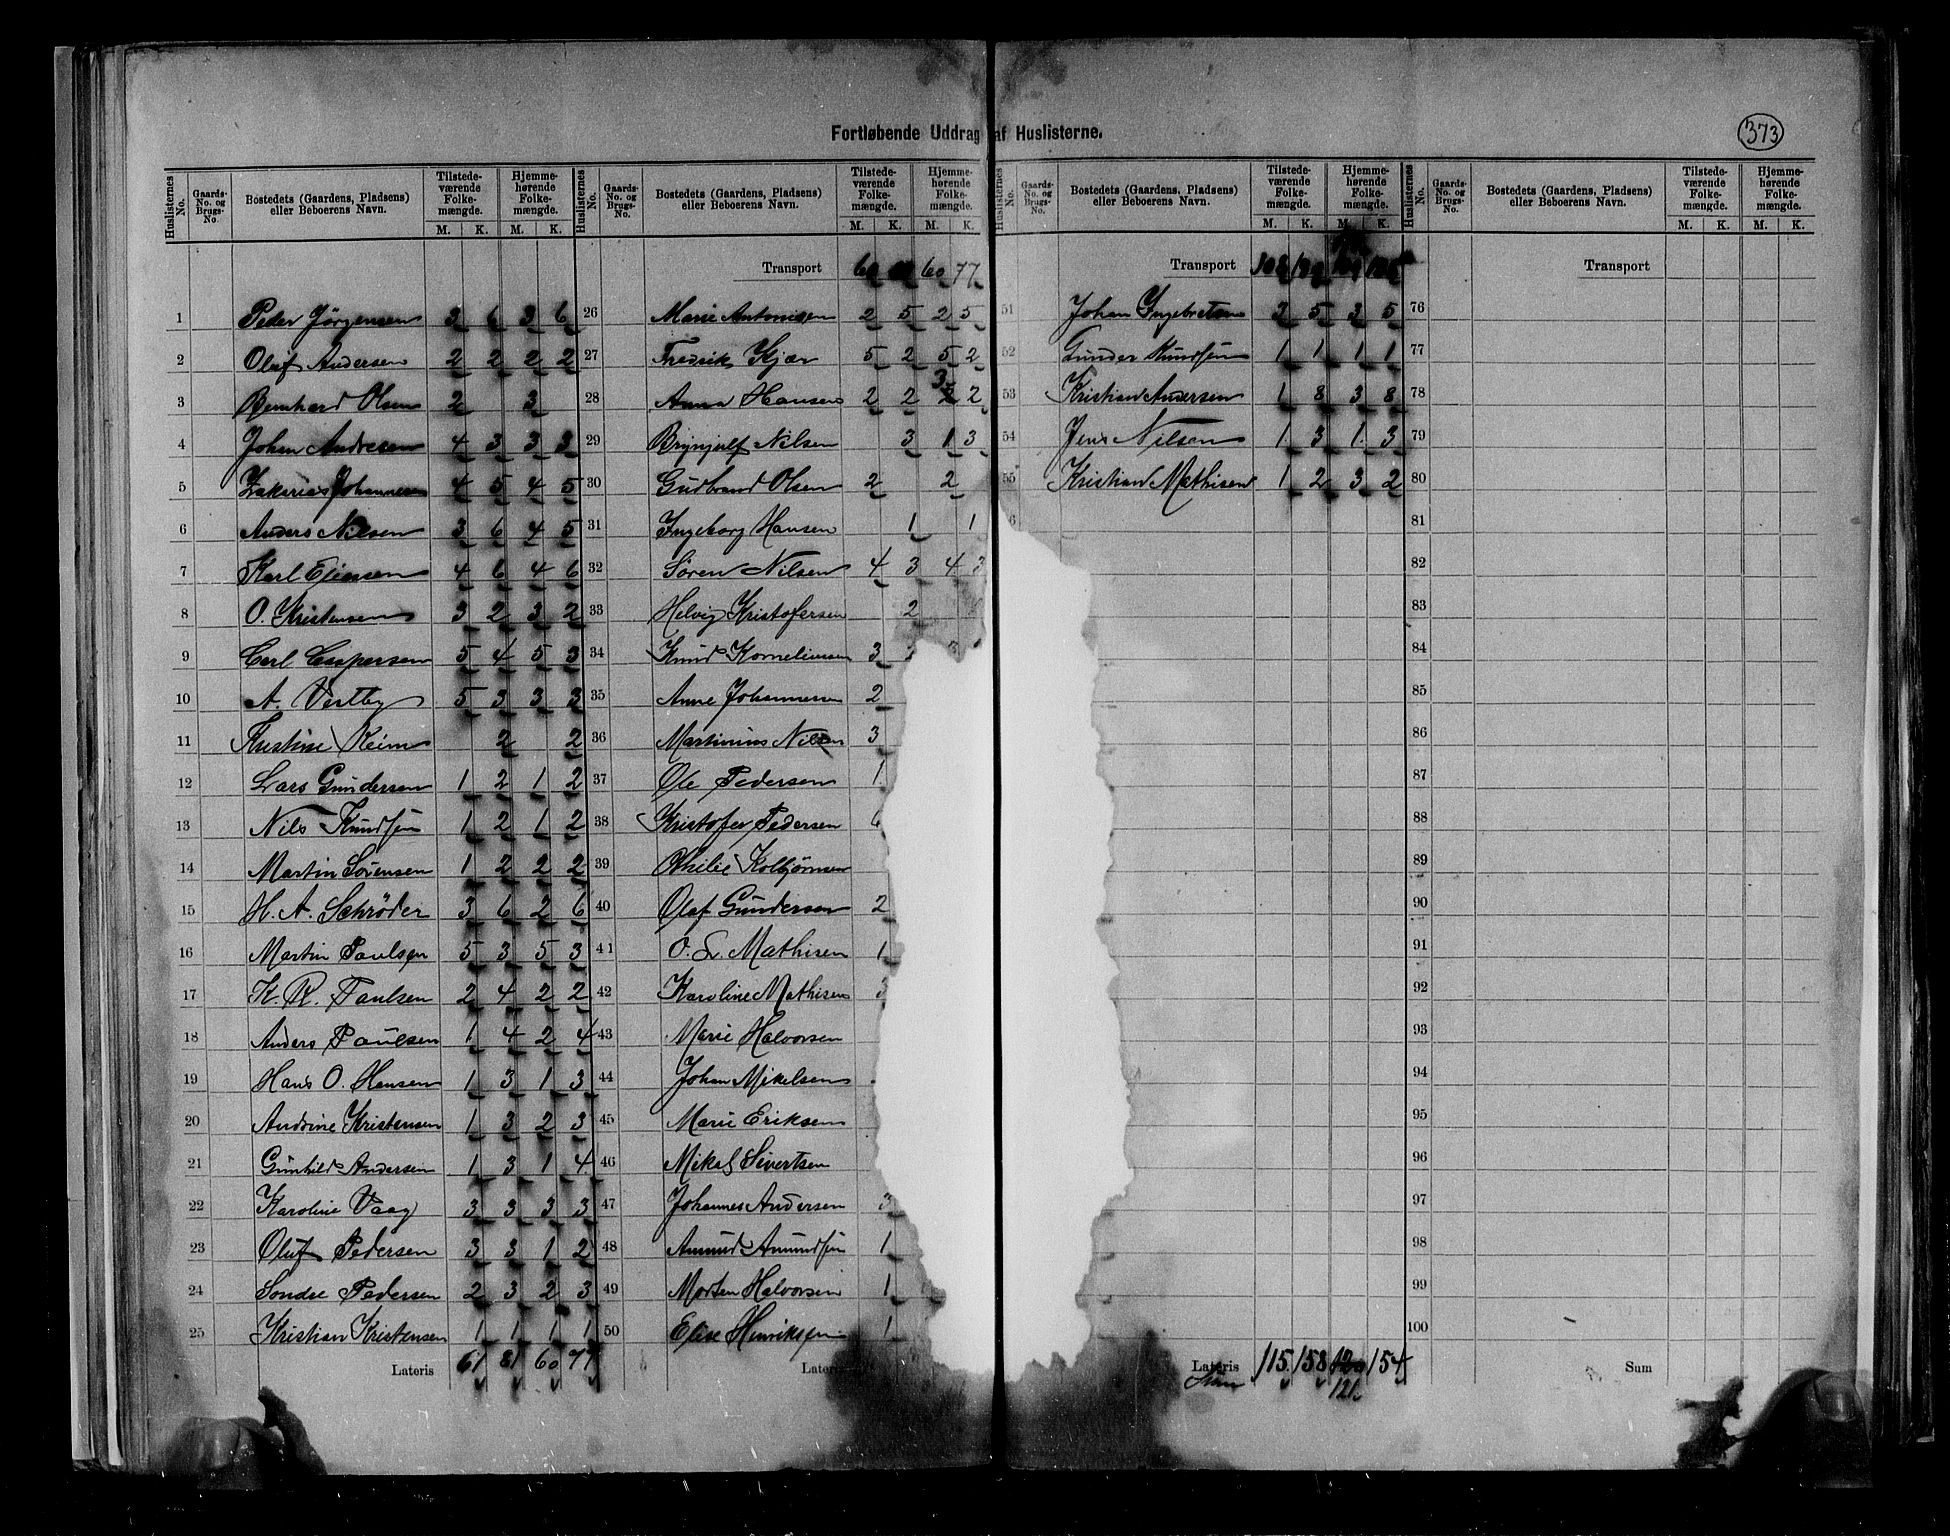 Fortløbende Uddrag af Huslisterne.
373
Huslisternes No. Gaards-No. og Brugs-No. Bostedets (Gaardens, Pladsens) eller Beboerens Navn. Tilstedeværende Folkemængde. M. K. Hjemmehørende Folkemængde. M. K.
1 Peder Jørgensen 3 6 3 6
2 Oluf Andersen 2 2 2 2
3 Bernhard Olsen 2 3
4 Johan Andresen 4 3 3 3
5 Zakarias Johannesen 4 5 4 5
6 Anders Nilsen 3 6 4 5
7 Karl Eliassen 4 6 4 6
8 O. Kristensen 3 2 3 2
9 Carl Caspersen 5 4 5 3
10 A. Vestby 5 3 3 3
11 Kristine Keim 2 2
12 Lars Gundersen 1 2 1 2
13 Nils Knudsen 1 2 1 2
14 Martin Sørensen 1 2 2 2
15 H. A. Schrøder 3 6 2 6
16 Martin Paulsen 5 3 5 3
17 K. R. Paulsen 2 4 2 2
18 Anders Paulsen 1 4 2 4
19 Hans O. Hansen 1 3 1 3
20 Andrine Kristensen 1 3 2 3
21 Gunhild Andersen 1 3 1 4
22 Karoline Vaag 3 3 3 3
23 Oluf Pedersen 3 3 1 2
24 Sondre Pedersen 2 3 2 3
25 Kristian Kristensen 1 1 1 1
Lateris 61 81 60 77
Huslisternes No. Gaards-No. og Brugs-No. Bostedets (Gaardens, Pladsens) eller Beboerens Navn. Tilstedeværende Folkemængde. M. K. Hjemmehørende Folkemængde. M. K.
Transport 60 77
26 Marie Antonisen 2 5 2 5
27 Fredrik Kjær 5 2 5 2
28 Anna Hansen 2 2 3 2
29 Brynjulf Nilsen 3 1 3
30 Gudbrand Olsen 2 2
31 Ingeborg Hansen 1 1
32 Søren Nilsen 4 3 4 3
33 Helvig Kristofersen 2
34 Knud Korneliussen 3
35 Anne Johannesen 2
36 Martinius Nilsen 3
37 Ole Pedersen 1
38 Kristofer Pedersen 6
39 Othilie Kolbjørnsen
40 Olaf Gundersen 2
41 O. L. Mathisen 1
42 Karoline Mathisen 3
43 Marie Halvorsen
44 Johan Mikelsen
45 Marie Eriksen
46 Mikal Sivertsen
47 Johannes Andersen 3
48 Amund Amundsen 1
49 Morten Halvorsen 1
50 Elise Henriksen 1
Lateris
Huslisternes No. Gaards-No. og Brugs-No. Bostedets (Gaardens, Pladsens) eller Beboerens Navn. Tilstedeværende Folkemængde. M. K. Hjemmehørende Folkemængde. M. K.
Transport 108
51 Johan Ingebretsen 3 5 3 5
52 Gunder Knudsen 1 1 1 1
53 Kristian Andersen 1 8 3 8
54 Jens Nilsen 1 3 1 3
55 Kristian Mathisen 1 2 3 2
Lateris 115 158 120 154
Sum 121
Huslisternes No. Gaards-No. og Brugs-No. Bostedets (Gaardens, Pladsens) eller Beboerens Navn. Tilstedeværende Folkemængde. M. K. Hjemmehørende Folkemængde. M. K.
Transport
76
77
78
79
80
81
82
83
84
85
86
87
88
89
90
91
92
93
94
95
96
97
98
99
100
Sum